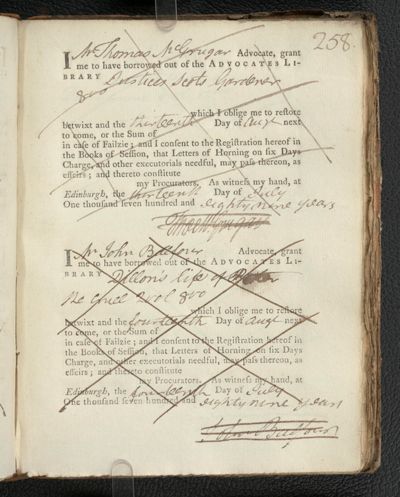 258.
I Mr Thomas McGrugar Advocate, grant
me to have borrowed out of the ADVOCATES LI-
BRARY Justices Scots Gardener
8vo
which I oblige me to restore
betwixt and the thirteenth Day of Augt next
to come, or the Sum of
in case of Failzie; and I consent to the Registration hereof in
the Books of Session, that Letters of Horning on six Days
Charge, and other executorials needful, may pass thereon, as
effeirs; and thereto constitute
my Procurators. As witness my hand, at
Edinburgh, the thirteenth Day of July
One thousand seven hundred and eighty nine years
Tho McGrugar
I Mr John Balfour Advocate, grant
me to have borrowed out of the ADVOCATES LI-
BRARY Dillon's life of Peter
the Cruel 2 vol 8vo
which I oblige me to restore
betwixt and the fourteenth Day of Augt next
to come, or the Sum of
in case of Failzie; and I consent to the Registration hereof in
the Books of Session, that Letters of Horning on six Days
Charge, and other executorials needful, may pass thereon, as
effeirs; and thereto constitute
my Procurators. As witness my hand, at
Edinburgh, the fourteenth Day of July
One thousand seven hundred and eighty nine years
John Balfour